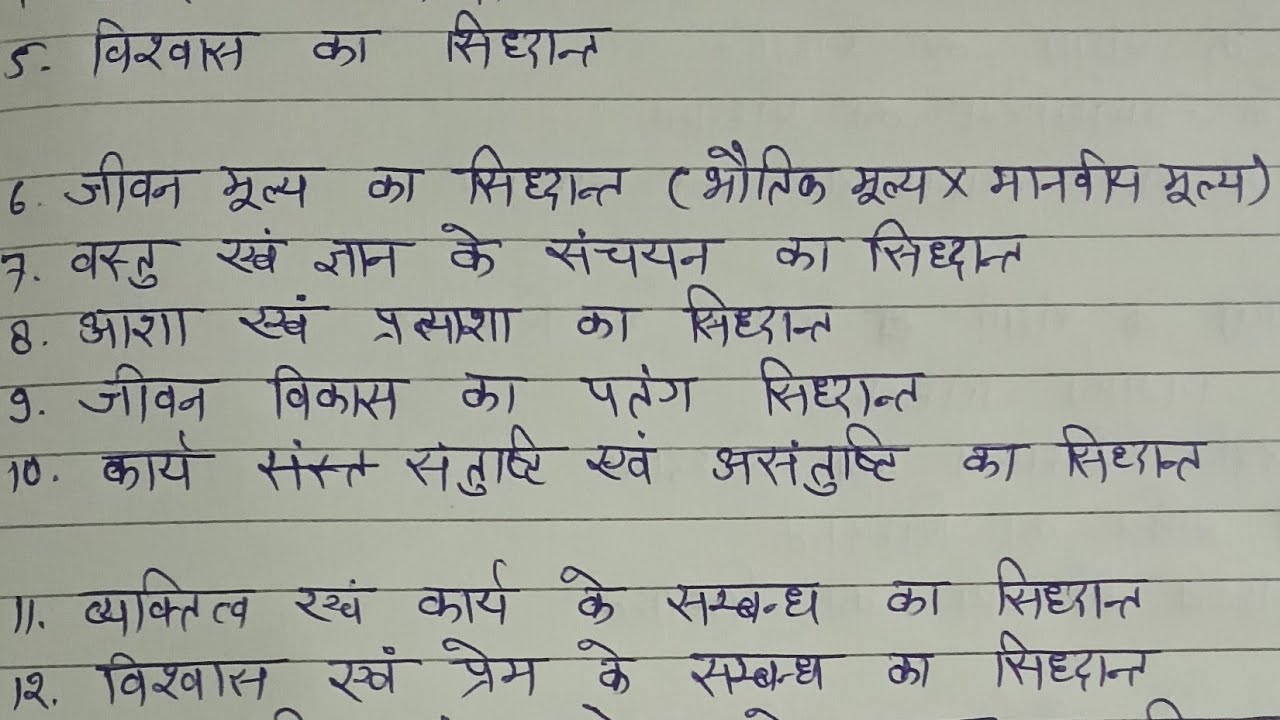 5. विश्वास का सिध्दान्त
6. जीवन मूल्य का सिध्दान्त (भौतिक मूल्य x मानवीय मूल्य)
7. वस्तु एवं ज्ञान के संचयन का सिध्दान्त
8. आशा एवं प्रत्याशा का सिध्दान्त
9. जीवन विकास का पतंग सिध्दान्त
10. कार्य संतुष्टि एवं असंतुष्टि का सिध्दान्त
11. व्यक्तित्व एवं कार्य के सम्बन्ध का सिध्दान्त
12. विश्वास एवं प्रेम के सम्बन्ध का सिध्दान्त